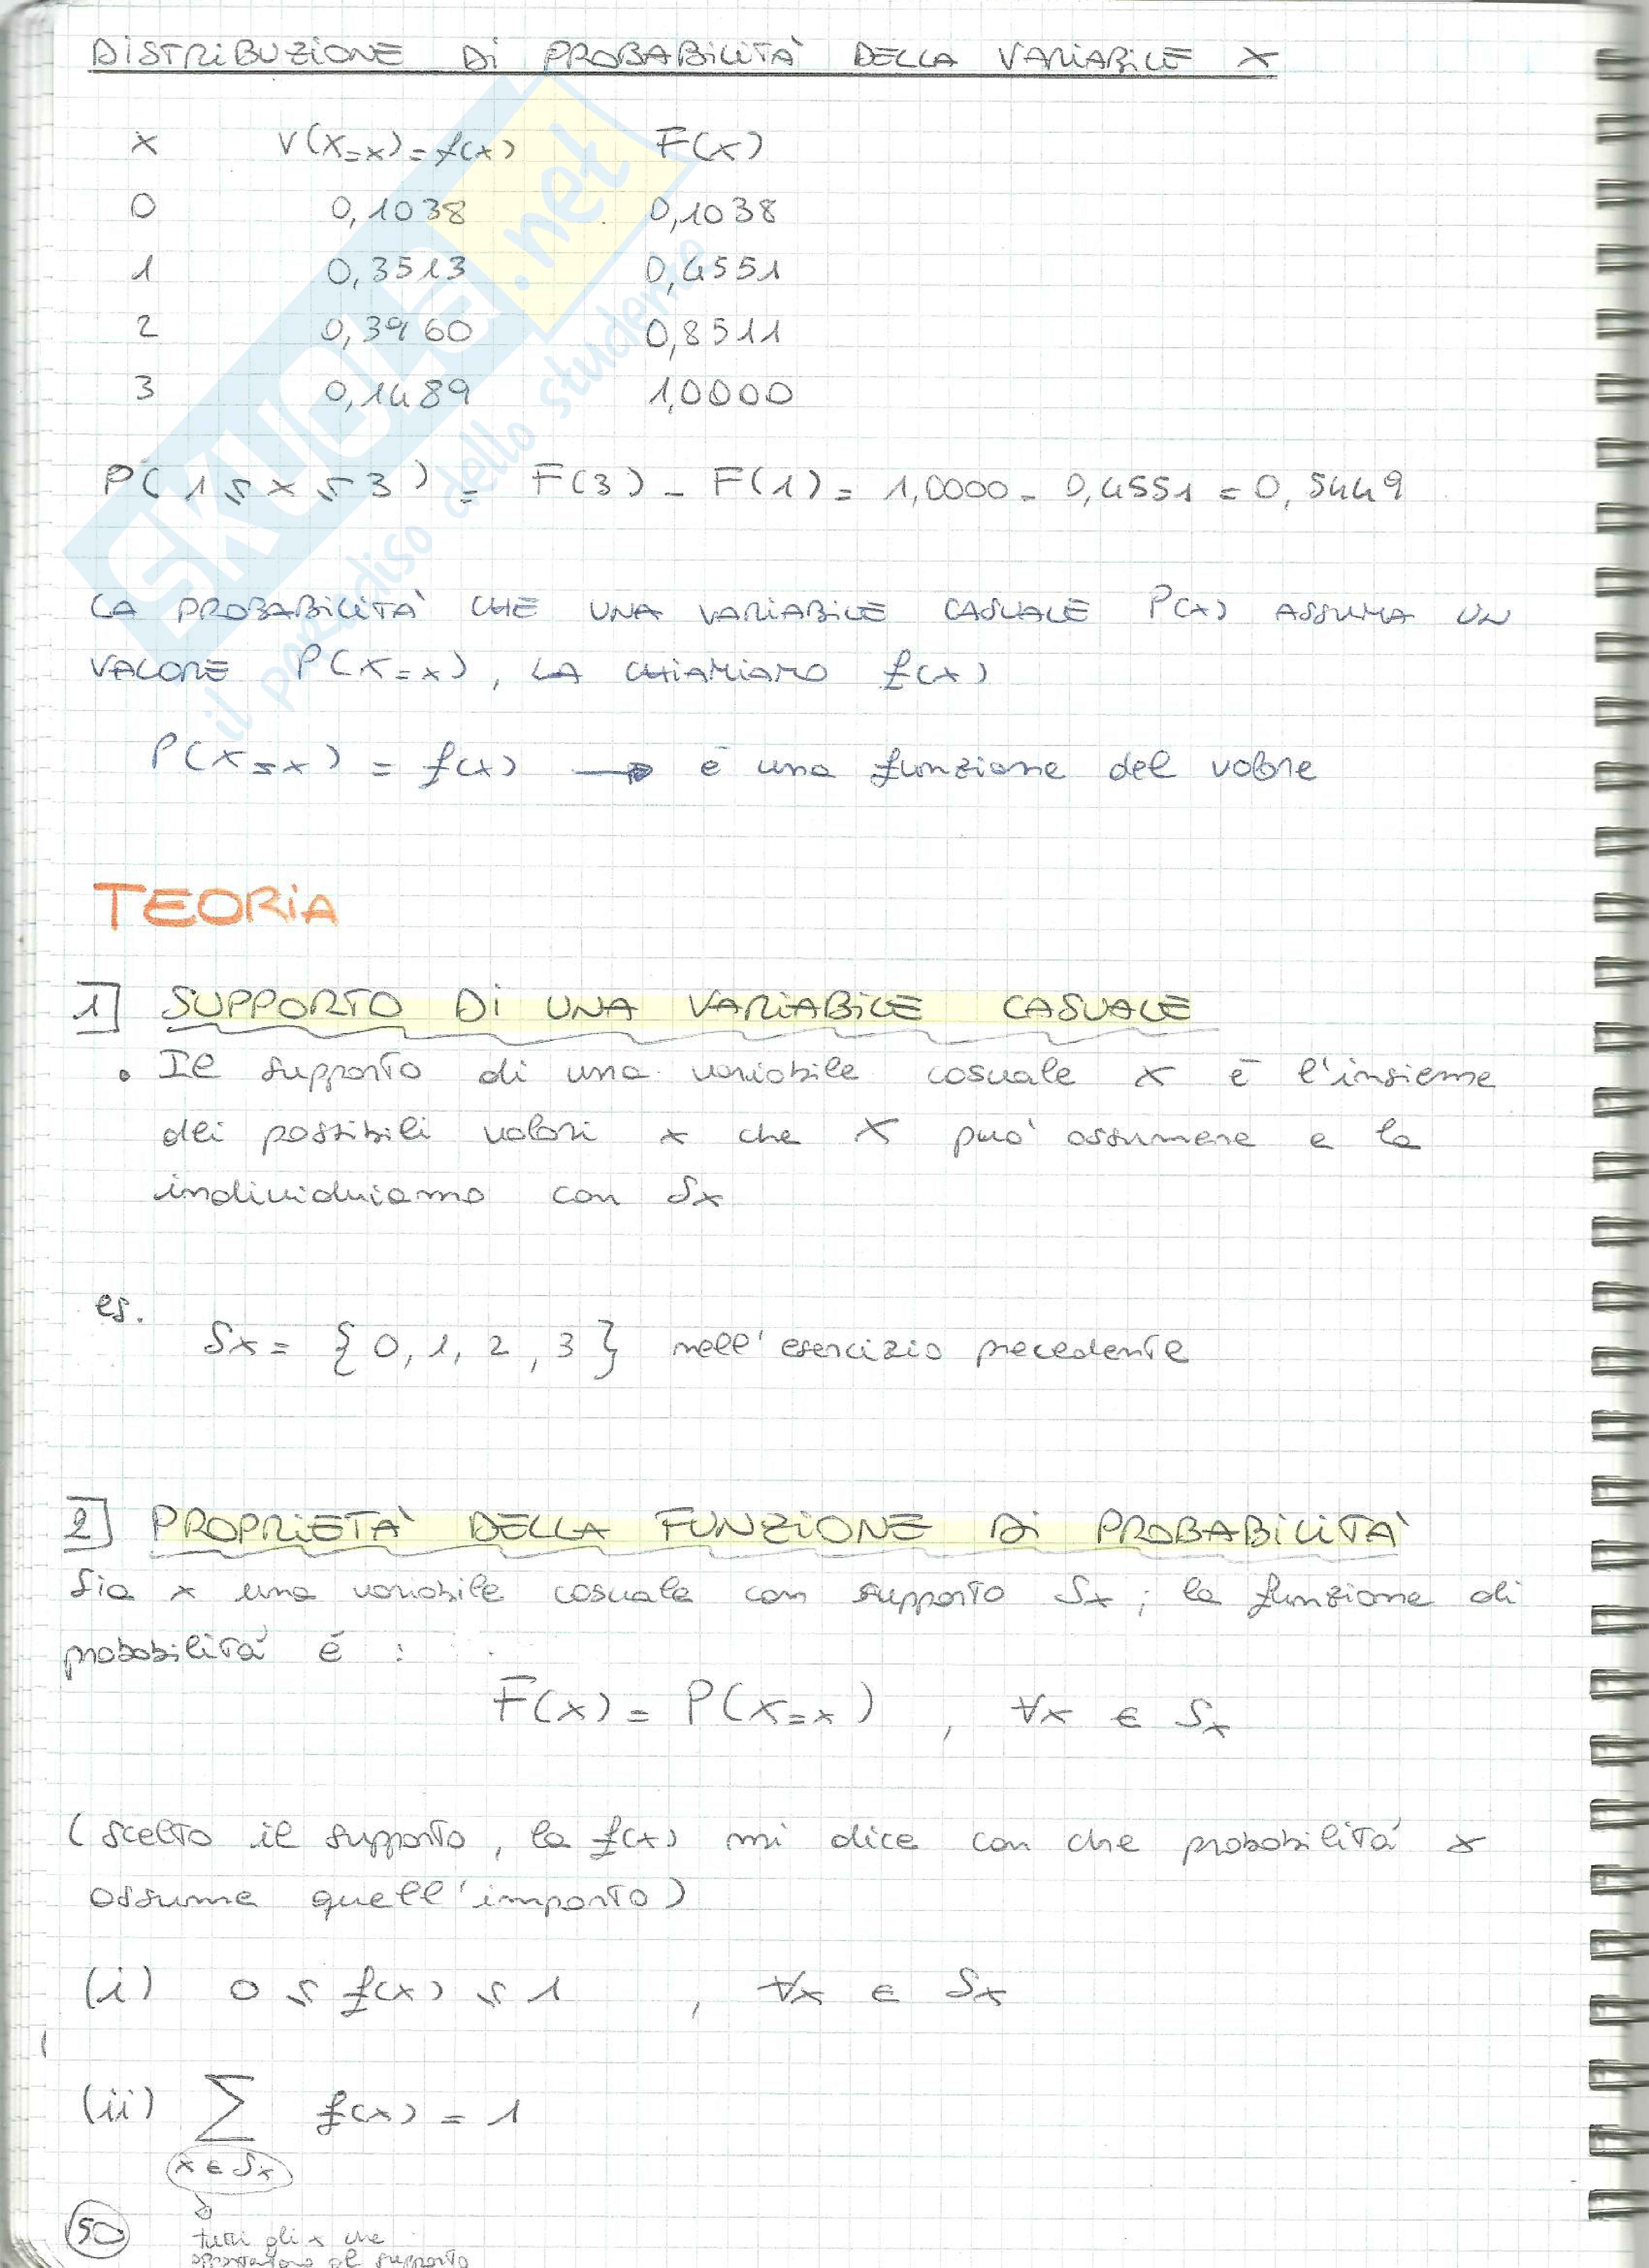 DISTRIBUZIONE DI PROBABILITÀ DELLA VARIABILE X
x V(X=x)=f(x) F(x)
0 0,1038 0,1038
1 0,3513 0,4551
2 0,3960 0,8511
3 0,1489 1,0000
P(1≤x≤3) = F(3) - F(1) = 1,0000 - 0,4551 = 0,5449
LA PROBABILITÀ CHE UNA VARIABILE CASUALE P(x) ASSUMA UN
VALORE P(X=x), LA CHIAMIAMO f(x)
P(X≤x) = f(x) → è una funzione del valore
TEORIA
1] SUPPORTO DI UNA VARIABILE CASUALE
• Il supporto di una variabile casuale X è l'insieme
dei possibili valori x che X può assumere e lo
individuiamo con Sx
es.
Sx = {0, 1, 2, 3} nell'esercizio precedente
2] PROPRIETÀ DELLA FUNZIONE DI PROBABILITÀ
Sia x una variabile casuale con supporto Sx; la funzione di
probabilità è :
F(x) = P(X=x) , ∀x ∈ Sx
(scelto il supporto, la f(x) mi dice con che probabilità x
assume quell'importo)
(i) 0 ≤ f(x) ≤ 1 , ∀x ∈ Sx
(ii) ∑ f(x) = 1
x ∈ Sx
50
tutti gli x che
appartengono al supporto
SKUOLA.net
il paradiso dello studente